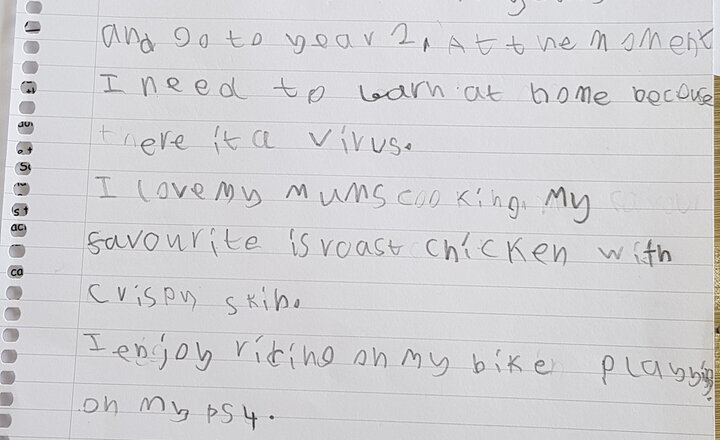 and go to year 2, At the moment
I need to learn at home because
there it a virus.
I love my mums cooking. My
favourite is roast chicken with
crispy skin.
I enjoy riting on my bike playying
on my ps4.